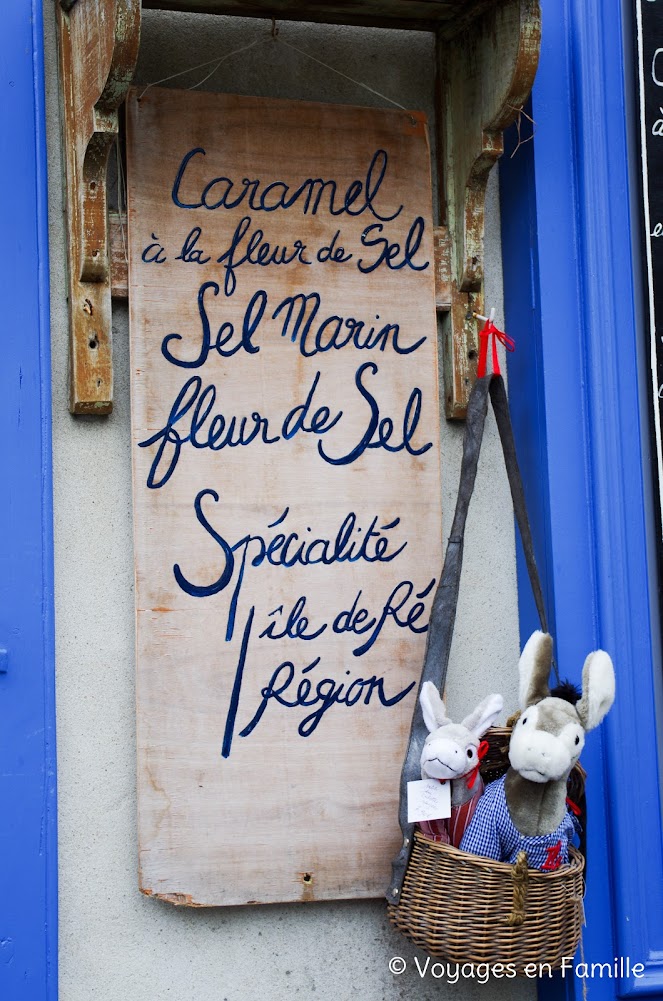 Caramel
à la fleur de Sel
Sel Marin
fleur de Sel
Spécialité
île de Ré
Région
© Voyages en Famille